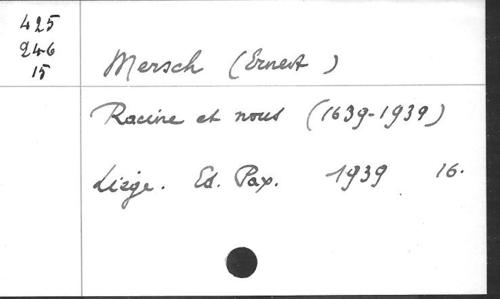 425
246
15
Mersch (Ernest )
Racine et nous (1639-1939)
Liège. Ed. Pax. 1939 16.